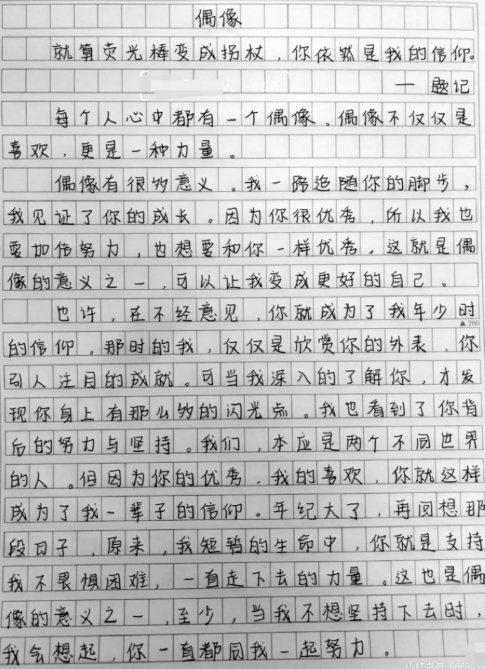 偶像
就算荧光棒变成拐杖，你依然是我的信仰。
一 题记
每个人心中都有一个偶像。偶像不仅仅是
喜欢，更是一种力量。
偶像有很多意义。我一路追随你的脚步，
我见证了你的成长。因为你很优秀，所以我也
要加倍努力，也想要和你一样优秀。这就是偶
像的意义之一，可以让我变成更好的自己。
也许，在不经意见，你就成为了我年少时
▲200
的信仰。那时的我，仅仅是欣赏你的外表，你
引人注目的成就。可当我深入的了解你，才发
现你身上有那么多的闪光点。我也看到了你背
后的努力与坚持。我们，本应是两个不同世界
的人。但因为你的优秀，我的喜欢，你就这样
成为了我一辈子的信仰。年纪大了，再回想那
段日子，原来，我短暂的生命中，你就是支持
我不畏惧困难，一直走下去的力量。这也是偶
像的意义之一，至少，当我不想坚持下去时，
我会想起，你一直都同我一起努力。